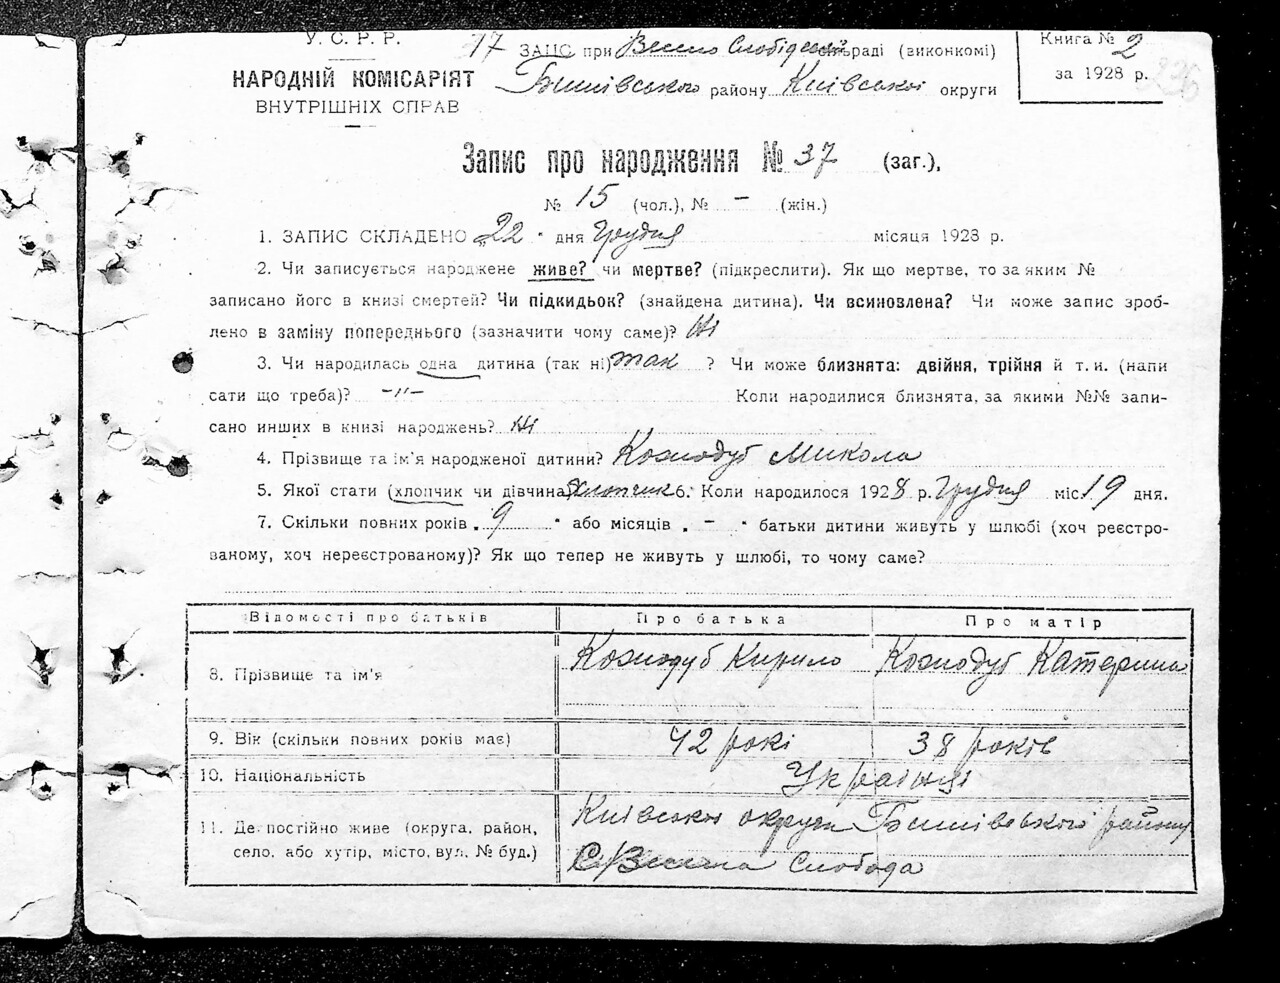 У. С. Р. Р.
17 ЗАГС при Весело Слобідській сільраді (виконкомі)
Книга № 2
НАРОДНІЙ КОМІСАРІЯТ
Бишівського району Київської округи
за 1928 р.
226
ВНУТРІШНІХ СПРАВ
Запис про народження № 37 (заг.),
№ 15 (чол.), № – (жін.)
1. ЗАПИС СКЛАДЕНО „22" дня Грудня місяця 1928 р.
2. Чи записується народжене живе? чи мертве? (підкреслити). Як що мертве, то за яким №
записано його в книзі смертей? Чи підкидьок? (знайдена дитина). Чи всиновлена? Чи може запис зроб-
лено в заміну попереднього (зазначити чому саме)? Ні
3. Чи народилась одна дитина (так ні) так ? Чи може близнята: двійня, трійня й т. и. (напи
сати що треба)? –"– Коли народилися близнята, за якими №№ запи-
сано инших в книзі народжень? Ні
4. Прізвище та ім'я народженої дитини? Микола
5. Якої стати (хлопчик чи дівчина) Хлопчик 6. Коли народилося 1928 р. Грудня міс. 19 дня.
7. Скільки повних років „ 9 " або місяців „ – " батьки дитини живуть у шлюбі (хоч реєстро-
ваному, хоч нереєстрованому)? Як що тепер не живуть у шлюбі, то чому саме?
Відомості про батьків Про батька Про матір
8. Прізвище та ім'я Кирило Катерина
9. Вік (скільки повних років має) 42 рокі 38 років
10. Національність Українці
11. Де постійно живе (округа, район, Київської округи Бишівського району
село, або хутір, місто, вул. № буд.) С Весела Слобода